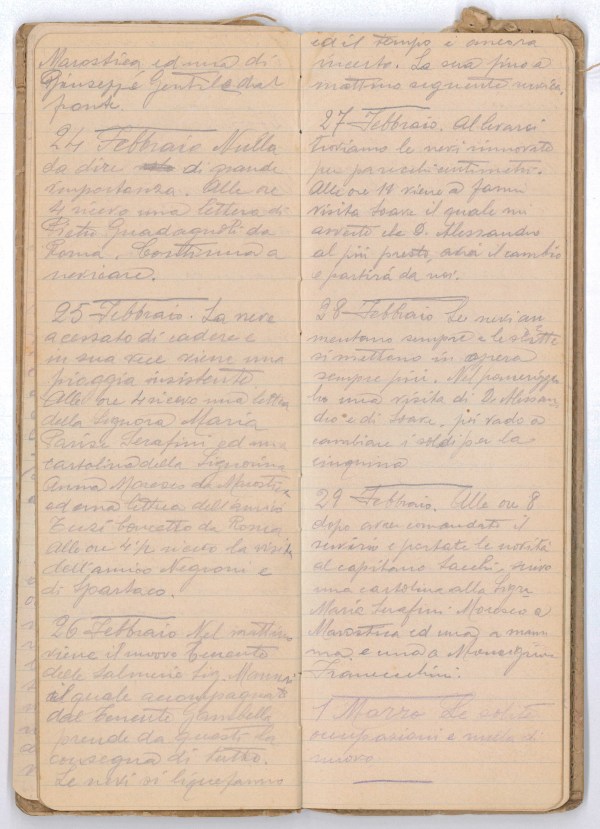 Marostica ed una di
Giuseppe Gentile dal
fronte.
24 Febbraio Nulla
da dire di grande
importanza. Alle ore
4 ricevo una lettera di
Pietro Guadagnoli da
Roma. Continua a
nevicare.
25 Febbraio. La neve
a cessato di cadere e
in sua vece viene una
pioggia insistente
Alle ore 4 ricevo una lettera
della Signora Maria
Parise Serafini ed una
cartolina della Signorina
Anna Moresco da Marostica
ed una lettera dell'amico
Concetto da Roma
Alle ore 4 1/2 ricevo la visita
dell'amico Negroni e
di Spartaco.
26 Febbraio Nel mattino
viene il nuovo Tenente
delle Salmerie Sig.
il quale accompagnato
dal Tenente Gambella
prende da questi la
consegna di tutto.
Le nevi si liquefanno
ed il tempo è ancora
incerto. La sua fino a
mattino seguente
27 Febbraio. Al levarci
troviamo le nevi rinnovate
per parecchi centimetri.
Alle ore 11 viene a farmi
visita Soave il quale mi
avverte che D. Alessandro
al più presto, avrà il cambio
e partirà da noi.
28 Febbraio Le nevi au
mentano sempre e le slitte
si mettono in opera
sempre più. Nel pomeriggio
ho una visita di D. Alessan
dro e di Soave, poi vado a
i soldi per la
cinquina
29 Febbraio. Alle ore 8
dopo aver comandato il
servizio e portate le novità
al capitano Sacchi, scrivo
una cartolina alla Sigra
Maria Serafini Moresco a
Marostica ed una a mam
ma e una a Monsignor
Franceschini.
1 Marzo Le solite
occupazioni e nulla di
nuovo